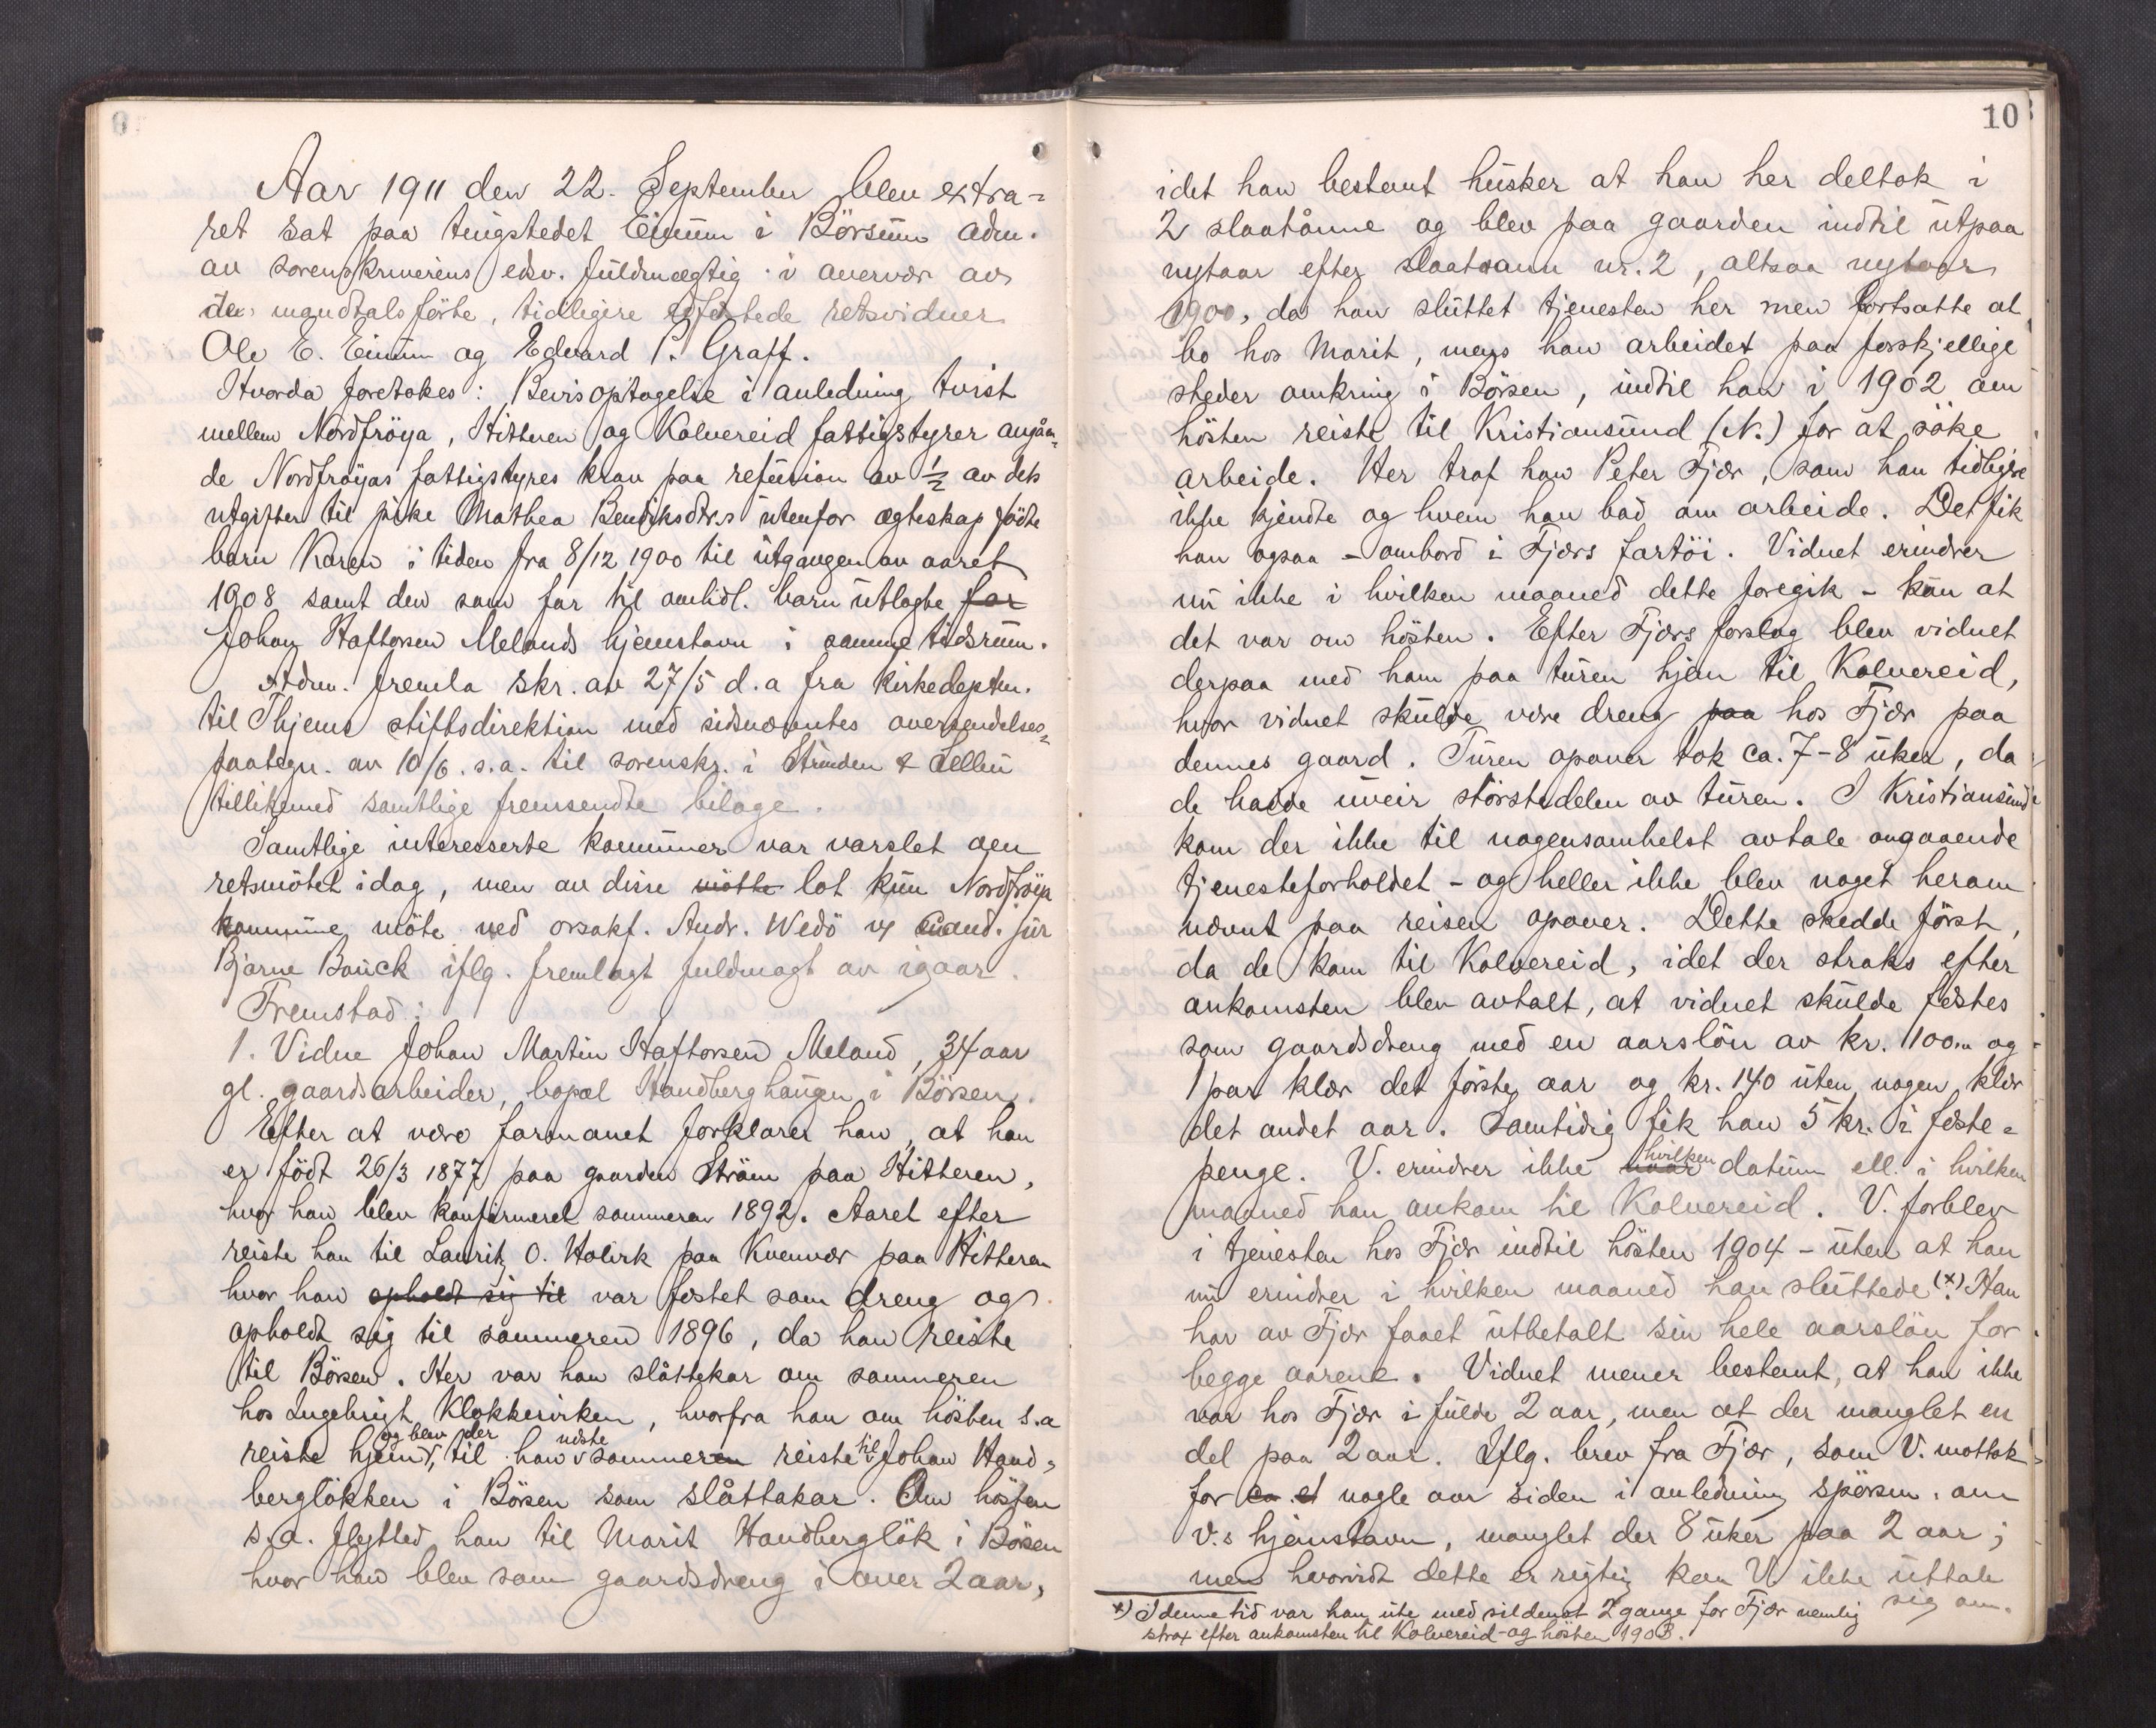 Aar 1911 den 22. September blev extra-
ret sat paa tingstedet Eimum i Börsum adm.
av sorenskriverens edsv. fuldmægtig i overvær av
de mandtalsførte, tidligere edfæstede retsvidner
Ole E. Einum og Edvard P. Graff.
Hvorda foretokes: Bevisoptagelse i anledning tvist
mellem Nordfröya, Hitteren og Kolvereid fattigstyrer angåen-
de Nordfröyas fattigstyres krav paa refusion av ½ av dets
utgifter til pike Mathea Bendiksdtr.s utenfor ægteskap födte
barn Karen i tiden fra 8/12 1900 til utgangen av aaret
1908 samt den som far til omhdl. barn utlagte far
Johan Haftorsen Melands hjemstavn i samme tidsrum.
Adm. fremla skr. av 27/5 d.a fra kirkedeptm.
til Thjems stiftsdirektion med sidsnævntes oversendelses-
paategn. av 10/6 s.a. til sorenskr. i Strinden & Selbu
tillikemed samtlige fremsendte bilage.
Samtlige interesserte kommuner var varslet om
retsmötet idag, men av disse mötte lot kun Nordfröya
kommune möte ved orsakf. Andr. Wedö v/ cand. jur
Bjarne Bauck iflg. fremlagt fuldmagt av igaar.
Fremstod:
1. Vidne Johan Martin Haftorsen Meland, 34 aar
gl. gaardsarbeider, bopæl Handberghaugen i Börsen.
Efter at være formanet forklarer han, at han
er födt 26/3 1877 paa gaarden Ström paa Hitteren,
hvor han blev konfirmeret sommeren 1892. Aaret efter
reiste han til Lauritz O. Holvik paa Kvenvær paa Hitteren
hvor han opholdt sig til var festet som dreng og
opholdt sig til sommeren 1896, da han reiste
til Börsen. Her var han slåttekar om sommeren
hos Ingebrigt Klokkervikén, hvorfra han om hösten s.a
reiste hjem og blev der, til han næste sommeren reiste til Johan Hand-
berglökken i Börsen som slåttakar. Om hösten
s.a. flytted han til Marit Handberglök i Börsen
hvor han blev som gaardsdreng i over 2 aar,
10
idet han bestemt husker at han her deltok i
2 slaatånne og blev paa gaarden indtil utpaa
nytaar efter slaataann nr. 2, altsaa nytaar
1900, da han sluttet tjenesten her men fortsatte at
bo hos Marit, mens han arbeidet paa forskjellige
steder omkring i Börsen, indtil han i 1902 om
hösten reiste til Kristiansund (N.) for at söke
arbeide. Her traf han Peter Fjær, som han tidligere
ikke kjendte og hvem han bad om arbeide. Det fik
han ogsaa – ombord i Fjærs fartöi. Vidnet erindrer
nu ikke i hvilken maaned dette foregik – kun at
det var om hösten. Efter Fjærs forslag blev vidnet
derpaa med ham paa turen hjem til Kolvereid,
hvor vidnet skulde være dreng paa hos Fjær paa
dennes gaard. Turen opover tok ca. 7-8 uker, da
de havde uveir störstedelen av turen. I Kristiansund
kom der ikke til nogensomhelst avtale angaaende
tjenesteforholdet – og heller ikke blev noget herom
nævnt paa reisen opover. Dette skedde först,
da de kom til Kolvereid, idet der straks efter
ankomsten blev avtalt, at vidnet skulde festes
som gaardsdreng med en aarslön av kr. 100.00 og
1 par klær det förste aar og kr. 140 uten nogen klær
det andet aar. Samtidig fik han 5 kr. i feste-
penge. V. erindrer ikke naar hvilken datum ell. i hvilken
maaned han ankom til Kolvereid. V. forblev
i tjenesten hos Fjær indtil hösten 1904 – uten at han
nu erindrer i hvilken maaned han sluttede (x). Han
har av Fjær faaet utbetalt sin hele aarslön for
begge aarene. Vidnet mener bestemt, at han ikke
var hos Fjær i fulde 2 aar, men at der manglet en
del paa 2 aar. Iflg. brev fra Fjær, som V. mottok
for ca et nogle aar siden i anledning spörsm. om
V.s hjemstavn, manglet der 8 uker paa 2 aar;
men hvorvidt dette er rigtig kan V. ikke uttale
sig om.
x) I denne tid var han ute med sildenot 2 gange for Fjær nemlig
strax efter ankomsten til Kolvereid – og hösten 1903.